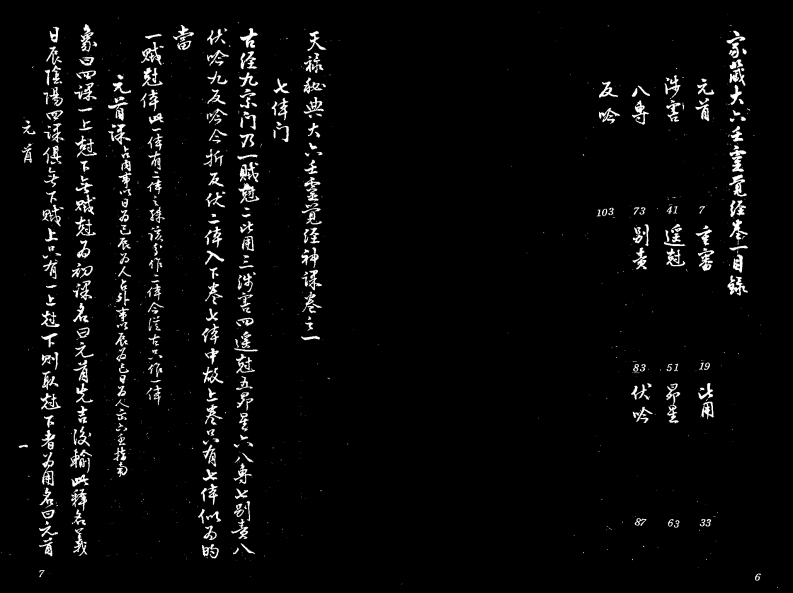 家藏大六壬靈覺經卷一目錄
元首 7 重審 19 比用 33
涉害 41 遥尅 51 昴星 63
八專 73 别責 83 伏吟 87
反吟 103
6
天禄秘典大六壬靈覺經神課卷之一
七体门
古经九宗门乃一贼尅二比用三涉害四遥尅五昴星六八專七别責八
伏吟九反吟今折反伏二体入下卷七体中故上卷只有七体似为的
當
一贼尅体此一体有二体之殊諸多作二体今從古只作一体
元首课 占内事以日为己辰为人占外事以辰为己日为人
象曰四课一上尅下无贼尅为初课名曰元首先吉後輸此释名義
日辰陰陽四课俱无下贼上只有一上尅下则取尅下者为用名曰元首
元首
一
7